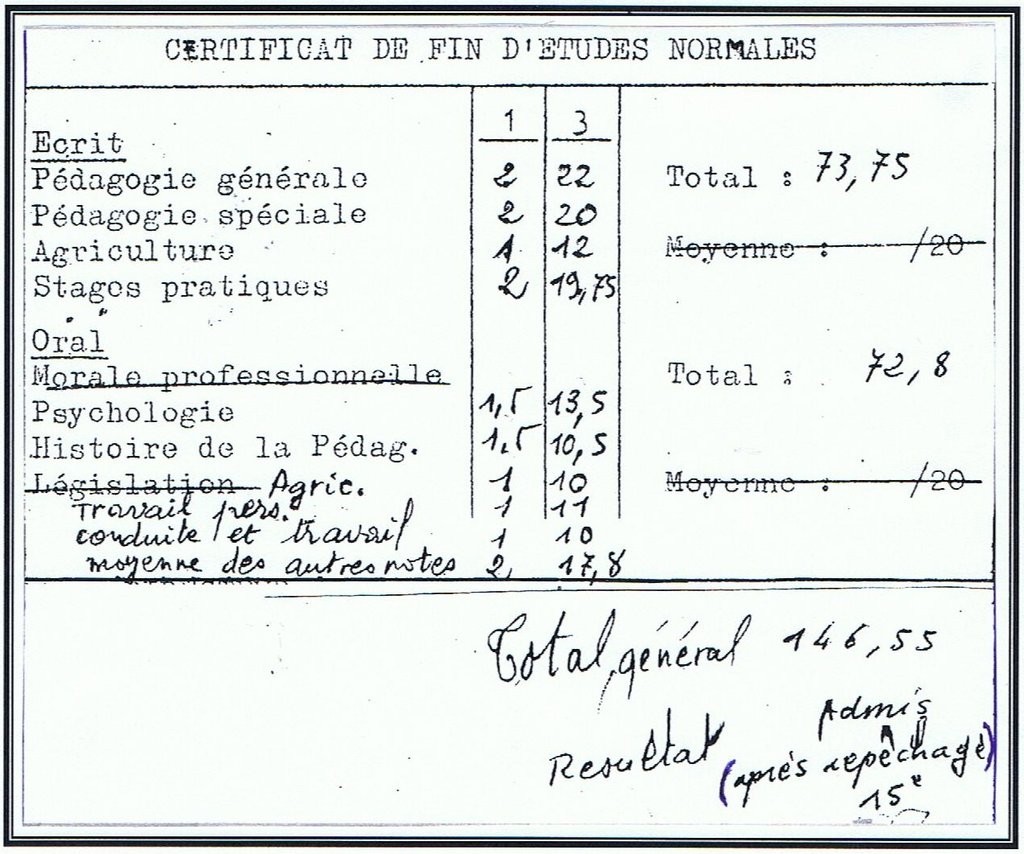 CERTIFICAT DE FIN D'ETUDES NORMALES
1 3
Ecrit
Pédagogie générale 2 22 Total : 73,75
Pédagogie spéciale 2 20
Agriculture 1 12 Moyenne : /20
Stages pratiques 2 19,75
Oral
Morale professionnelle Total : 72,8
Psychologie 1,5 13,5
Histoire de la Pédag. 1,5 10,5
Législation Agric. 1 10 Moyenne : /20
Travail pers. 1 11
conduite et travail 1 10
moyenne des autres notes 2 17,8
Total général 146,55
Resultat Admis
(après repêchage)
15e